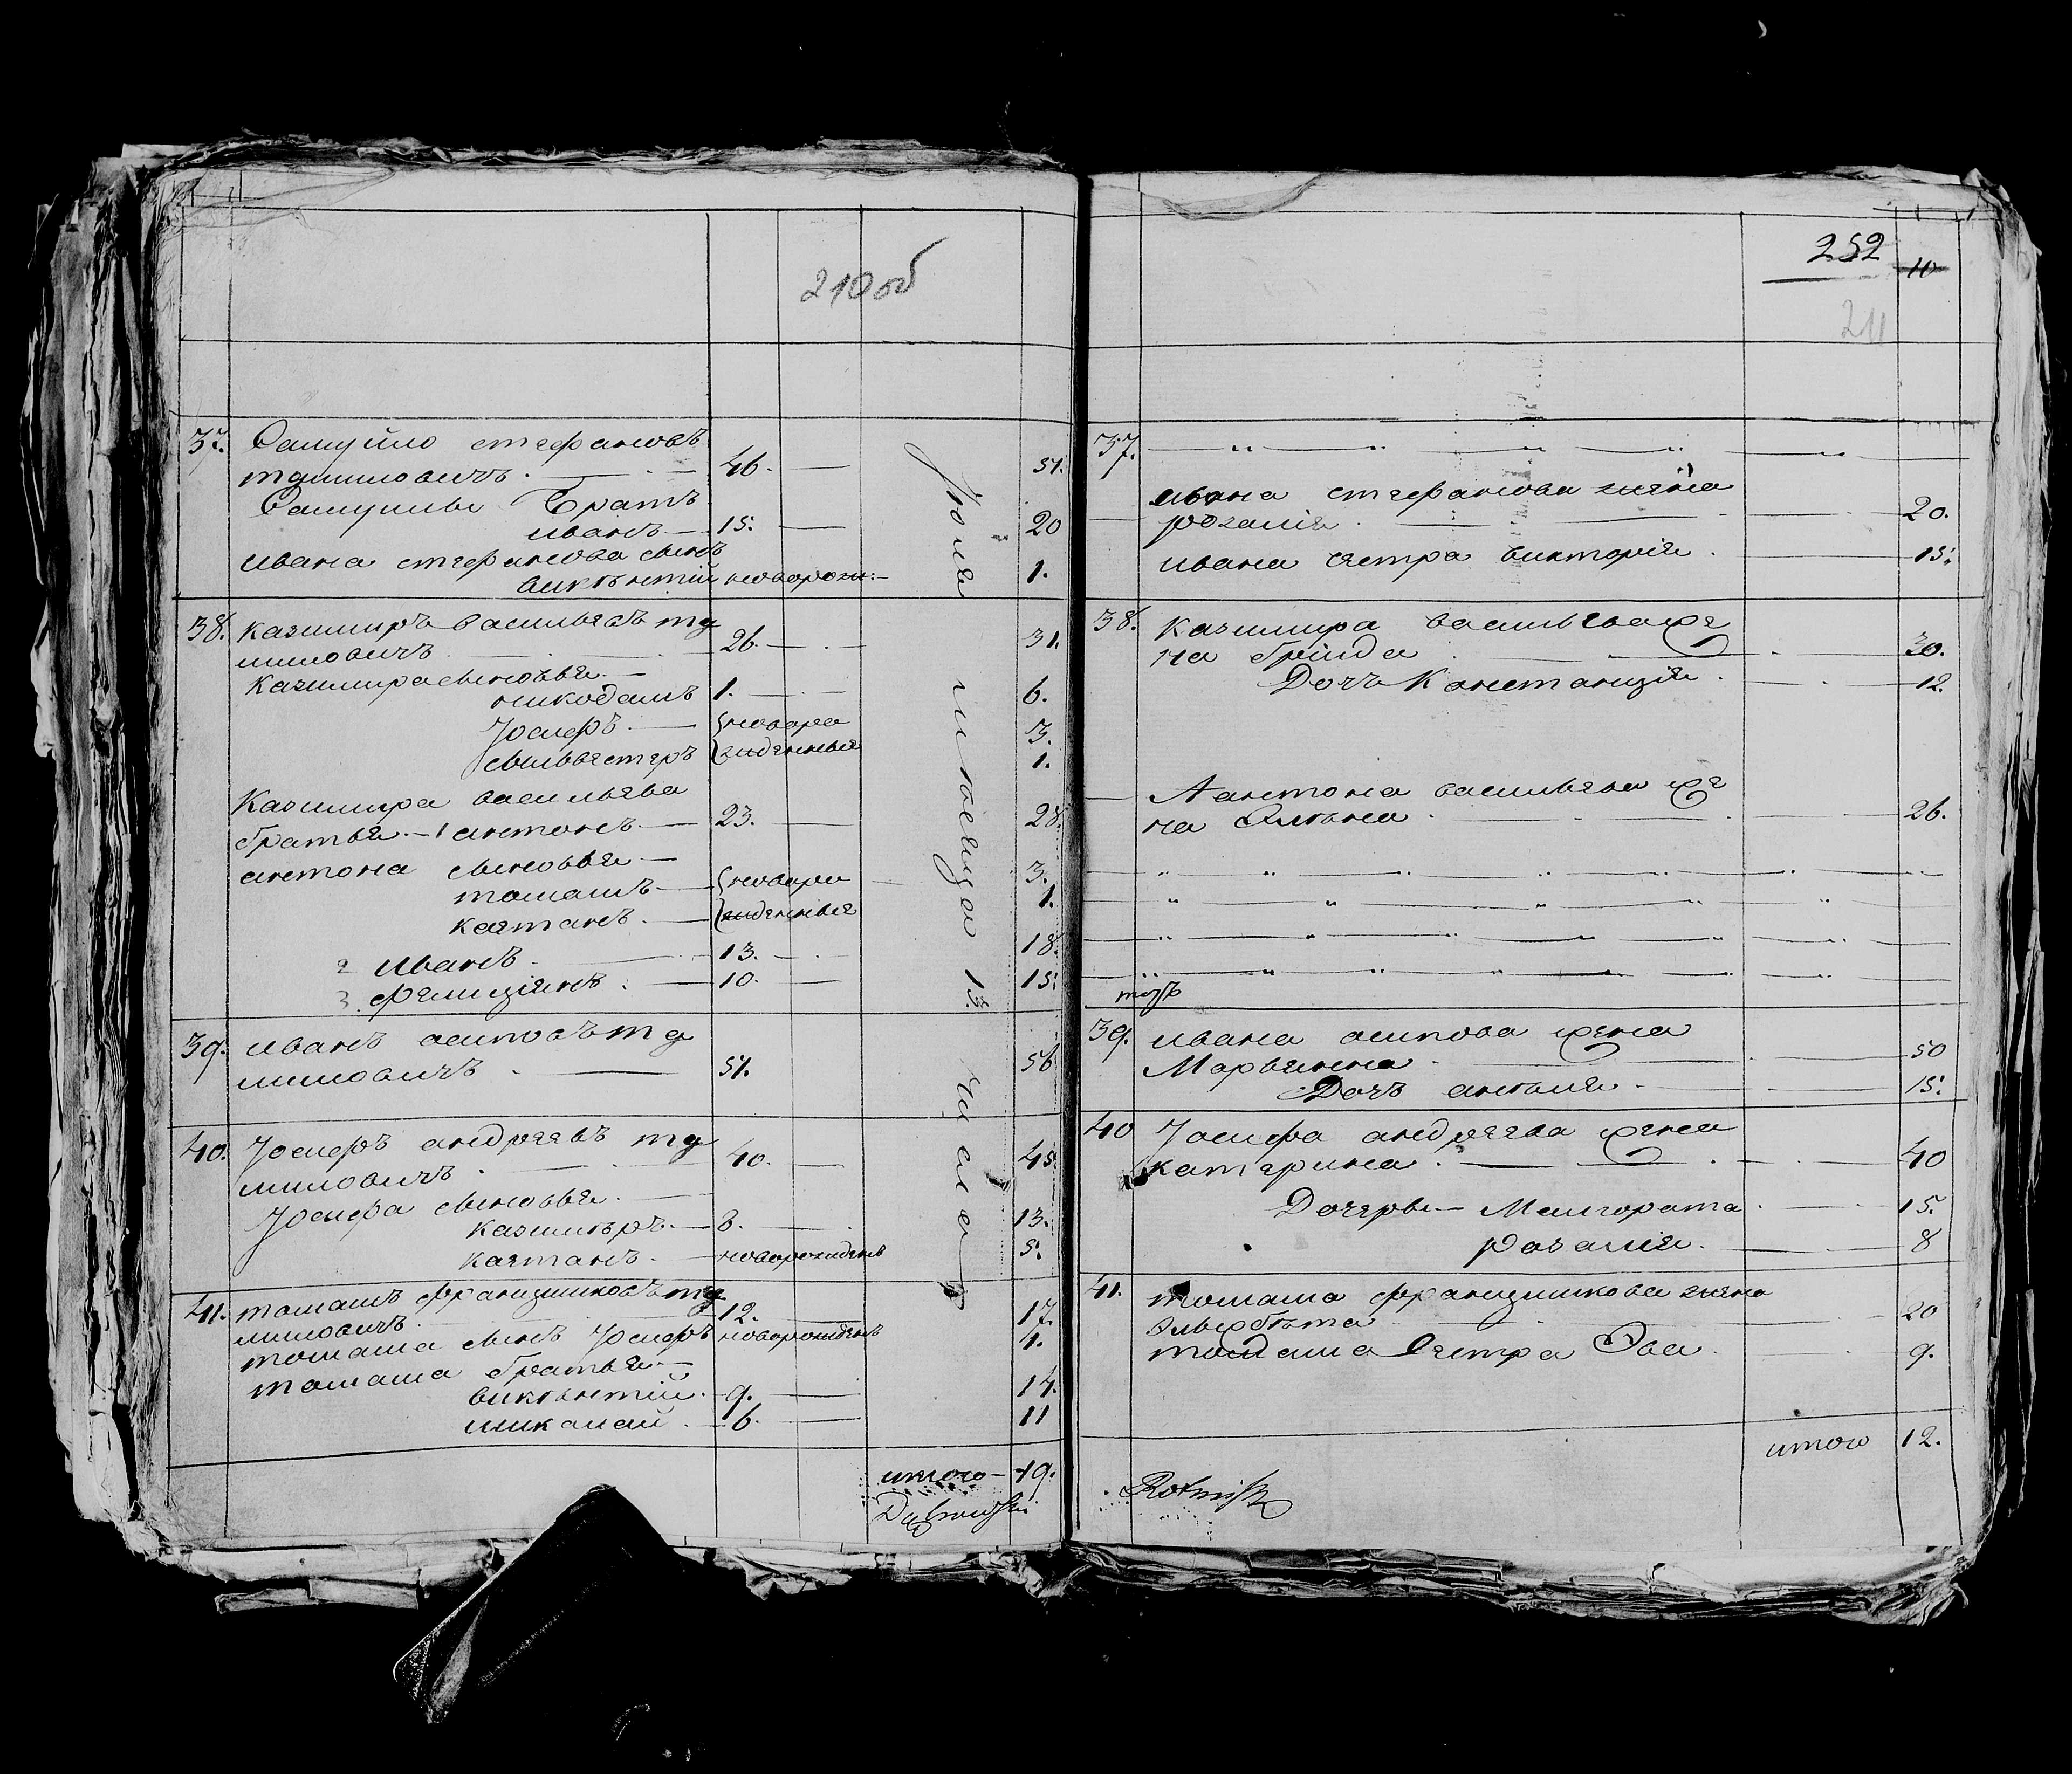 210 об
37. Самуйло стефановъ
тумиловичъ. 46. 51.
Самуилы Братъ
иванъ 15. 20
ивана стефанова сынъ
викънтій новорож: 1.
38. казимиръ васильевъ ту
миловичъ 26. 31.
Казимира сыновья
никодамъ 1. 6.
Јосифъ. новоро 3.
сыльвестеръ жденные 1.
Казимира васильева
братья 1 антонъ 23. 28.
антона сыновья
томашъ новоро 3.
каетанъ. жденные 1.
2 иванъ 13. 18.
3. фелиціянъ 10. 15.
39. иванъ осиповъ ту
миловичъ 51. 56
40. Јосифъ андреевъ ту
миловичъ 40. 45.
Јосифа сыновья
казимъръ 8. 13.
каетанъ. новорожденъ 5.
41. томашъ францишковъ ту
миловичъ 12. 17.
томаша сынъ Јосифъ новорожденъ 1.
томаша братья
викънтій. 9. 14.
миколай 6. 11
итого 19.
Июня месяца 13. числа
252 10
211
37.
ивана стефанова жена
розалія 20.
ивана сестра викторія 15.
38. казимира васильева же
на бригда 30.
Дочъ Констанція 12.
Аантона васильева же
на Элъна 26.
тожъ
39. ивана осипова жена
Марьянна 50
Дочъ анъля 15.
40 Јосифа андреева жена
катерина 40
Дочеры Малгората 15.
розалія. 8
41. томаша францишкова жена
Эльжбъта 20
томаша Сестра Эва 9.
итого 12.